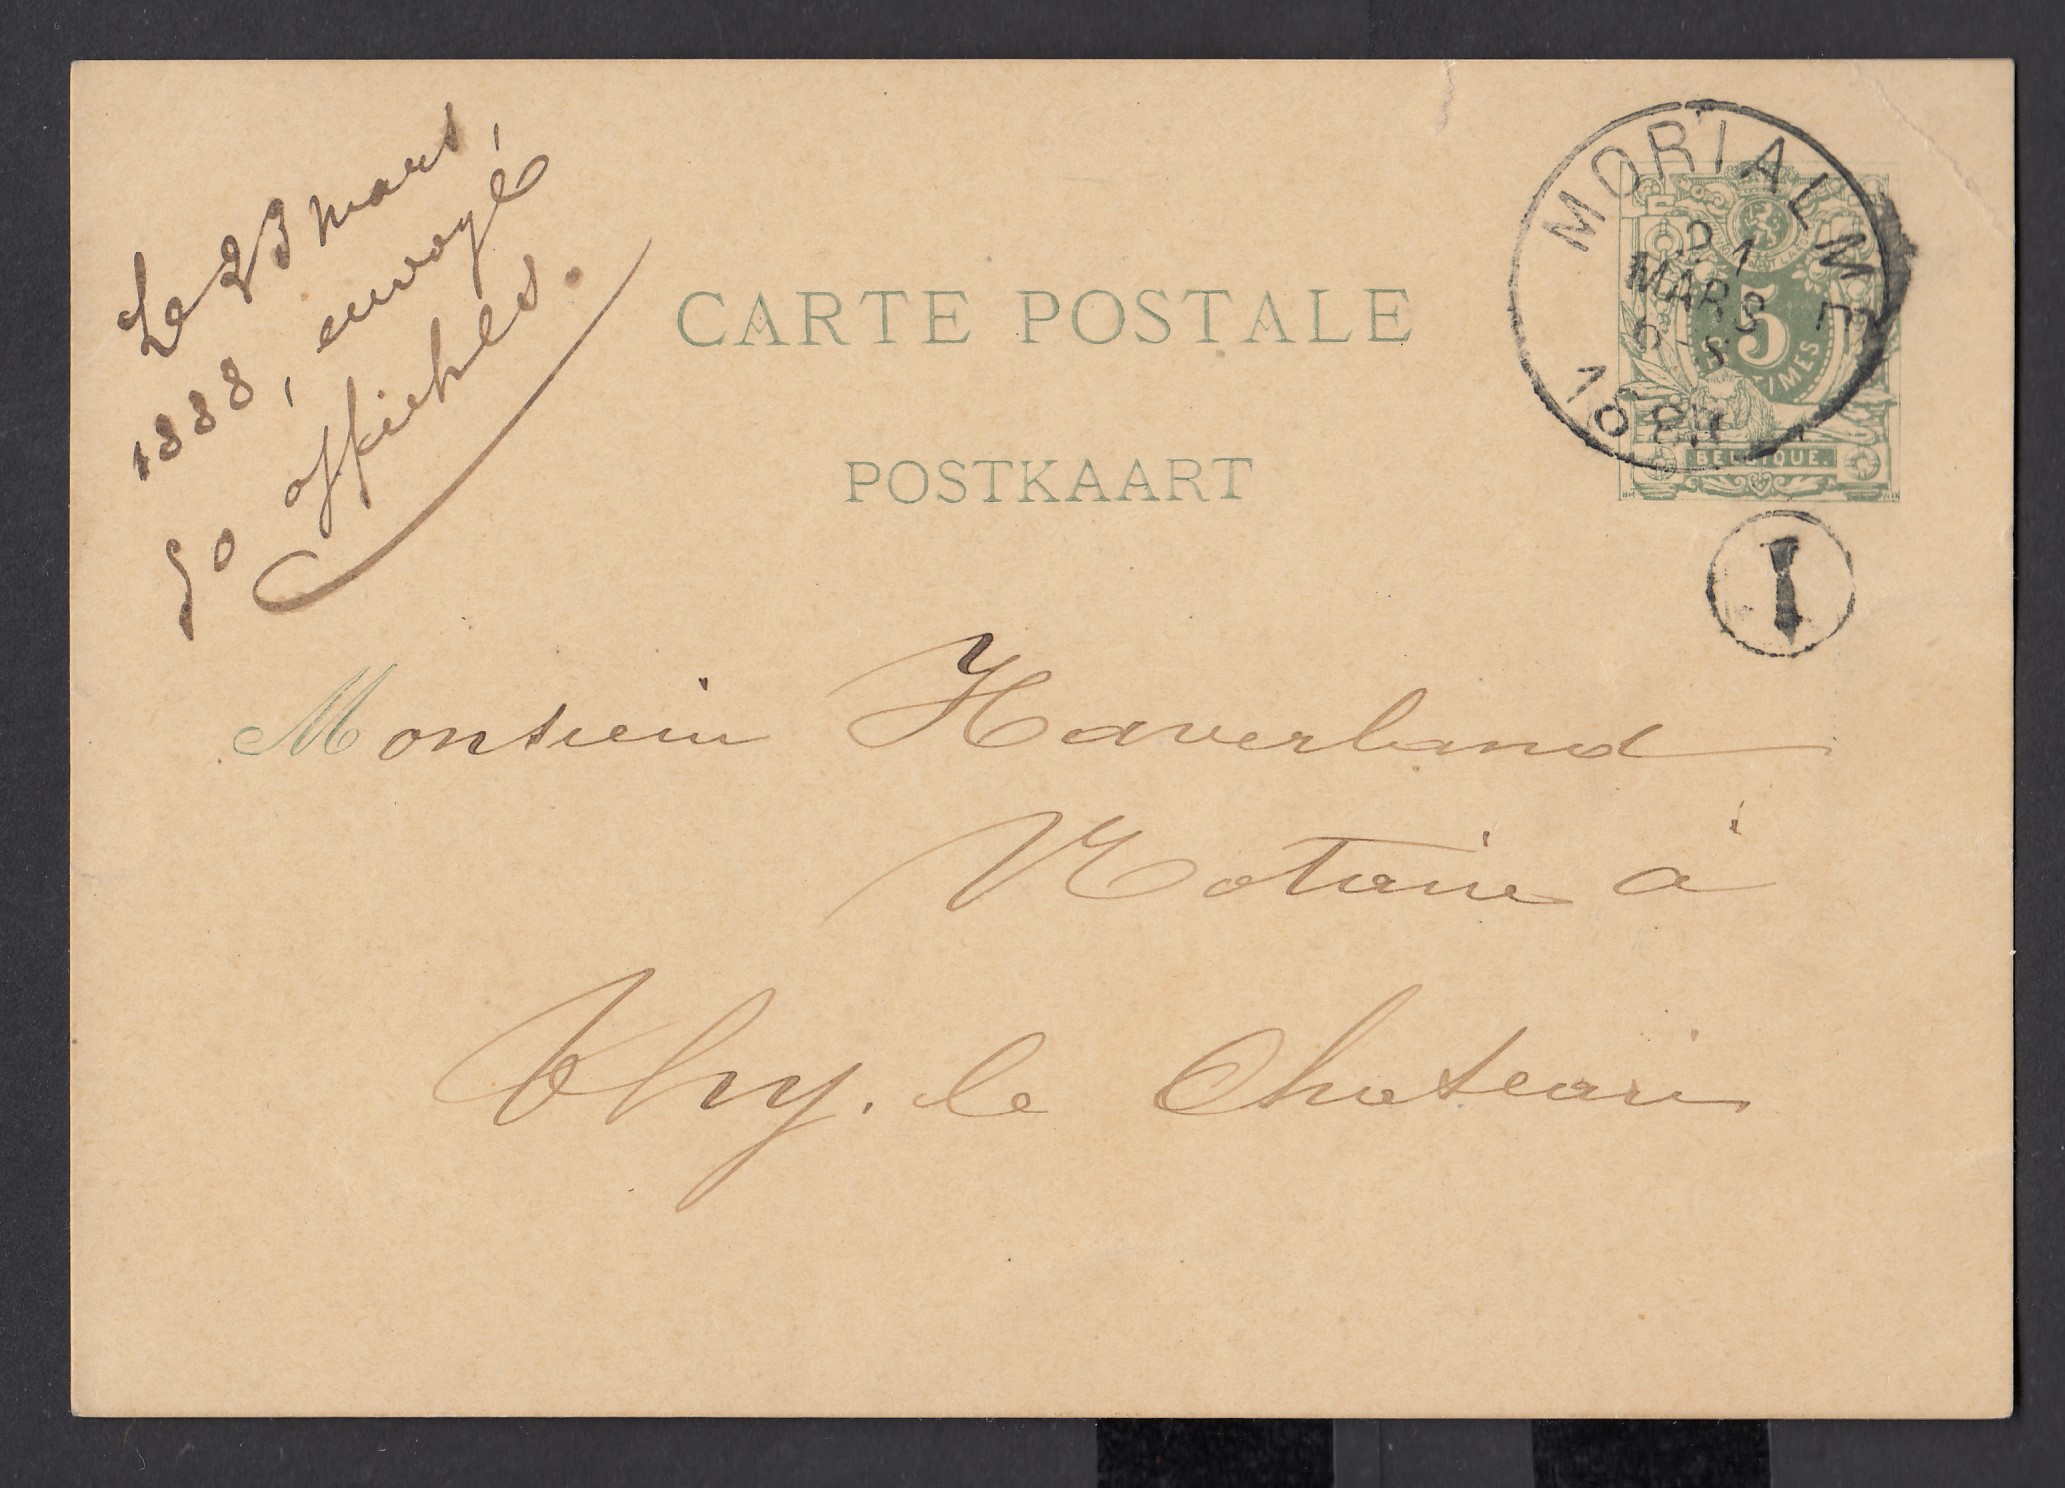 Le 23 mars
1888, envoyé
50 affiches.
CARTE POSTALE
POSTKAART
MORIALMÉ
21
MARS
6-S
1888
5
CENTIMES
BELGIQUE.
1
Monsieur Haverland
Notaire à
Thy. le Chateau